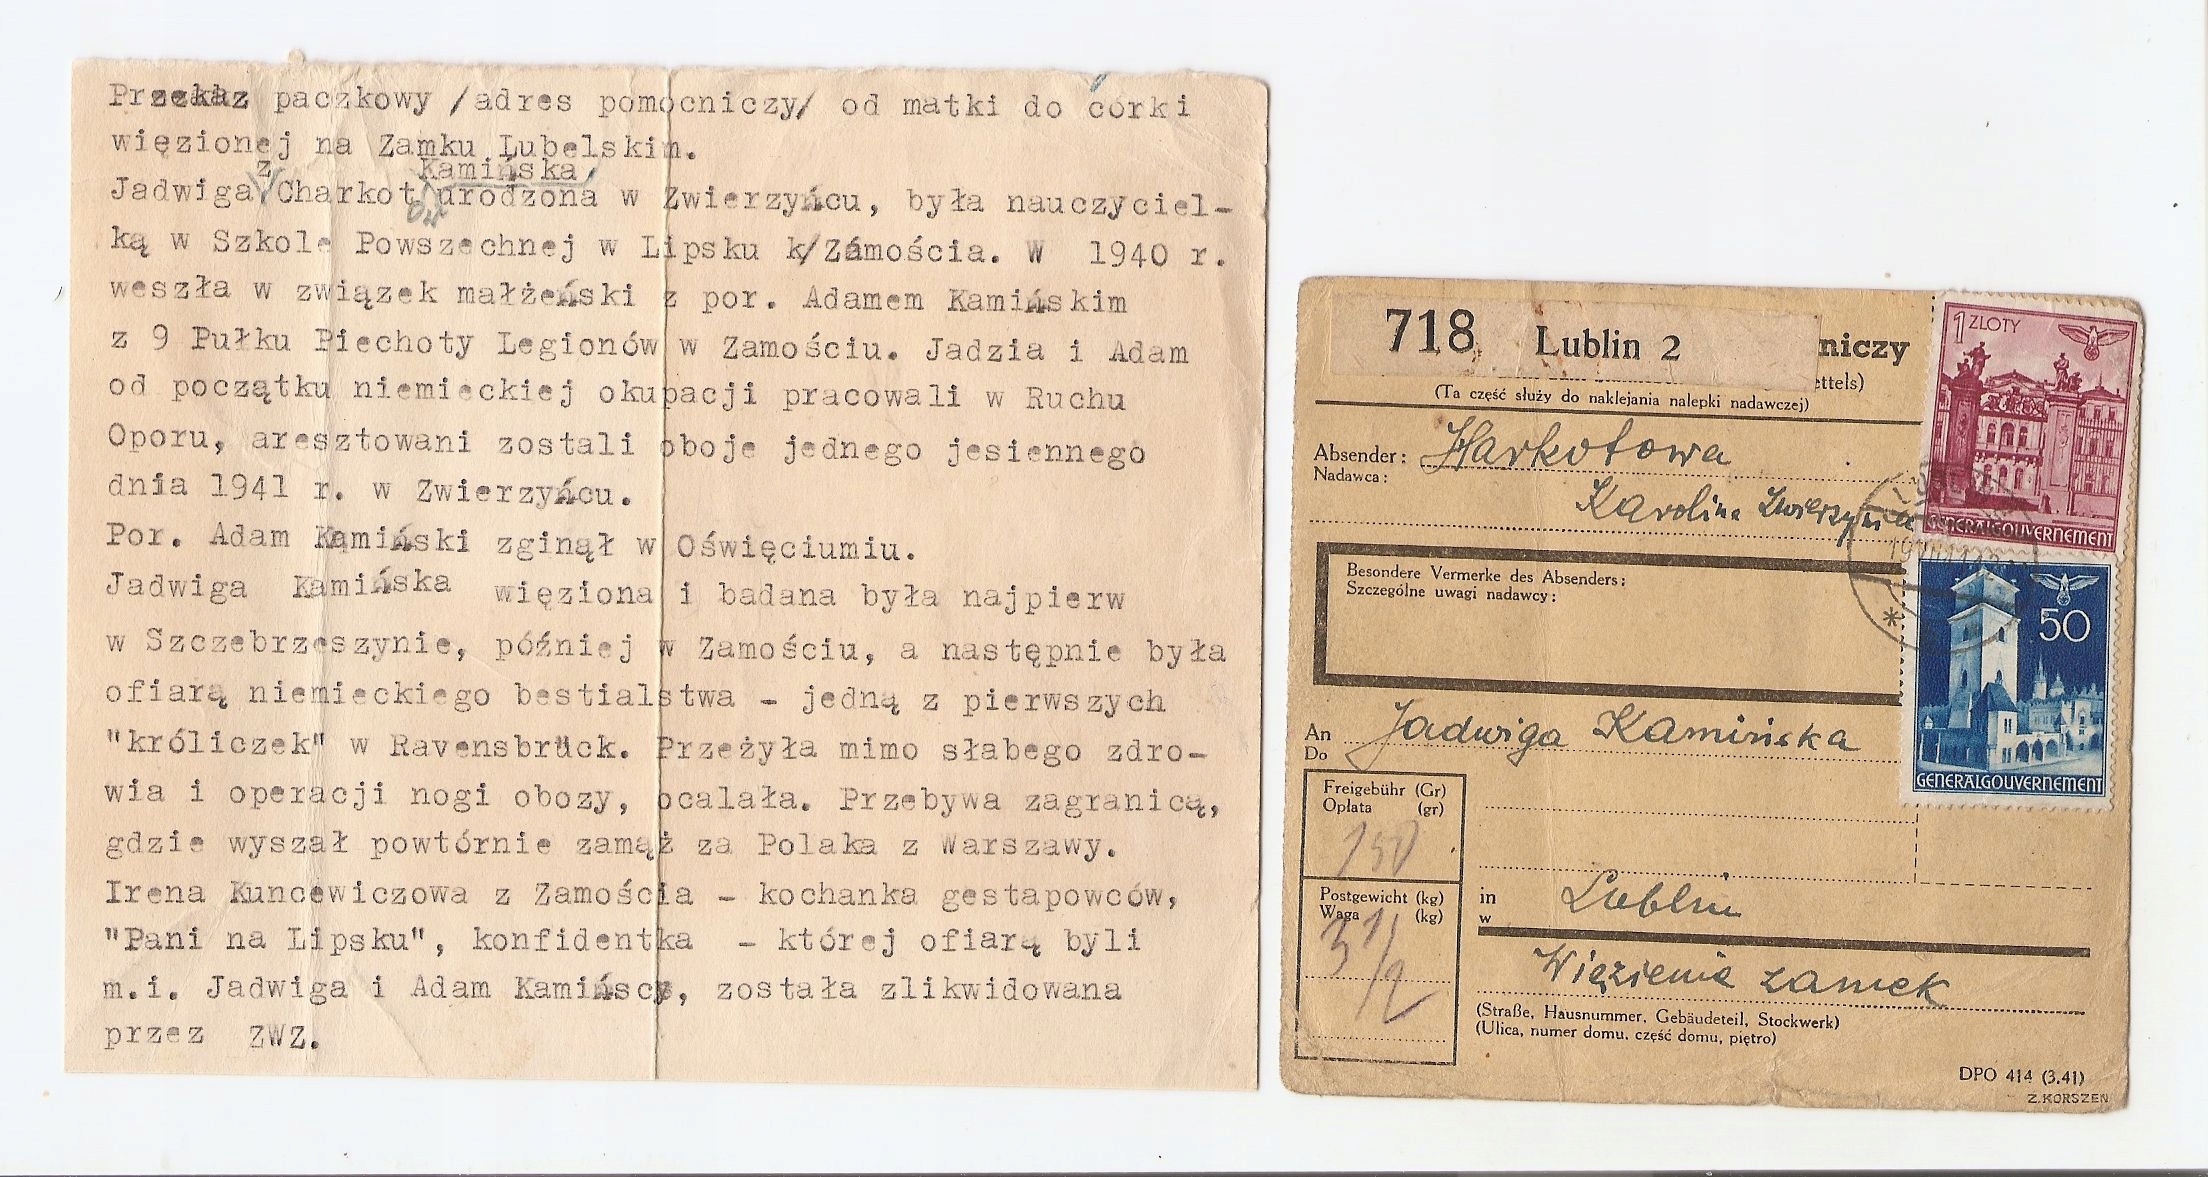 Przekaz paczkowy /adres pomocniczy/ od matki do córki
więzionej na Zamku Lubelskim.
Jadwiga z Charkotów Kamińska, urodzona w Zwierzyńcu, była nauczyciel-
ką w Szkole Powszechnej w Lipsku k/Zamościa. W 1940 r.
weszła w związek małżeński z por. Adamem Kamińskim
z 9 Pułku Piechoty Legionów w Zamościu. Jadzia i Adam
od początku niemieckiej okupacji pracowali w Ruchu
Oporu, aresztowani zostali oboje jednego jesiennego
dnia 1941 r. w Zwierzyńcu.
Por. Adam Kamiński zginął w Oświęciumiu.
Jadwiga Kamińska więziona i badana była najpierw
w Szczebrzeszynie, później w Zamościu, a następnie była
ofiarą niemieckiego bestialstwa - jedną z pierwszych
"króliczek" w Ravensbrück. Przeżyła mimo słabego zdro-
wia i operacji nogi obozy, ocalała. Przebywa zagranicą,
gdzie wyszał powtórnie zamąż za Polaka z Warszawy.
Irena Kuncewiczowa z Zamościa - kochanka gestapowców,
"Pani na Lipsku", konfidentka - której ofiarą byli
m.i. Jadwiga i Adam Kamińscy, została zlikwidowana
przez ZWZ.
718 Lublin 2 niczy
ettels)
(Ta część służy do naklejania nalepki nadawczej)
Absender: Harkotowa
Nadawca:
Karolina
Besondere Vermerke des Absenders:
Szczególne uwagi nadawcy:
An Jadwiga Kamińska
Do
Freigebühr (Gr)
Opłata (gr)
150
Postgewicht (kg)
Waga (kg)
3 1/2
in Lublin
w
Więzienie zamek
(Straße, Hausnummer, Gebäudeteil, Stockwerk)
(Ulica, numer domu, część domu, piętro)
DPO 414 (3.41)
Z.KORSZEN
1 ZLOTY
GENERALGOUVERNEMENT
50
GENERALGOUVERNEMENT